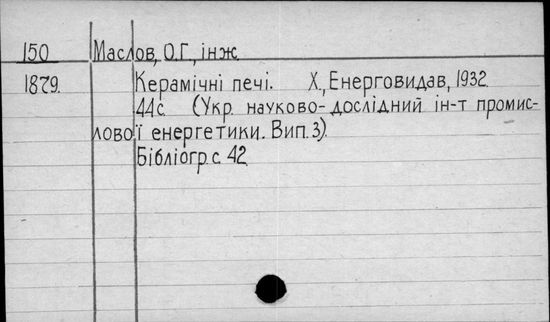 150 Маслов, О.Г., інж.
1879. Керамічні печі. Х., Енерговидав, 1932.
44с. (Укр. науково-дослідний ін-т промис-
лової енергетики. Вип. 3).
Бібліогр. с. 42